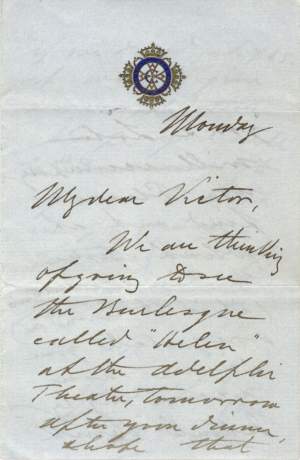 Monday
My dear Victor,
We are thinking
of going to see
the Burlesque
called "Helen"
at the Adelphi
Theatre, tomorrow
after your dinner,
& hope that